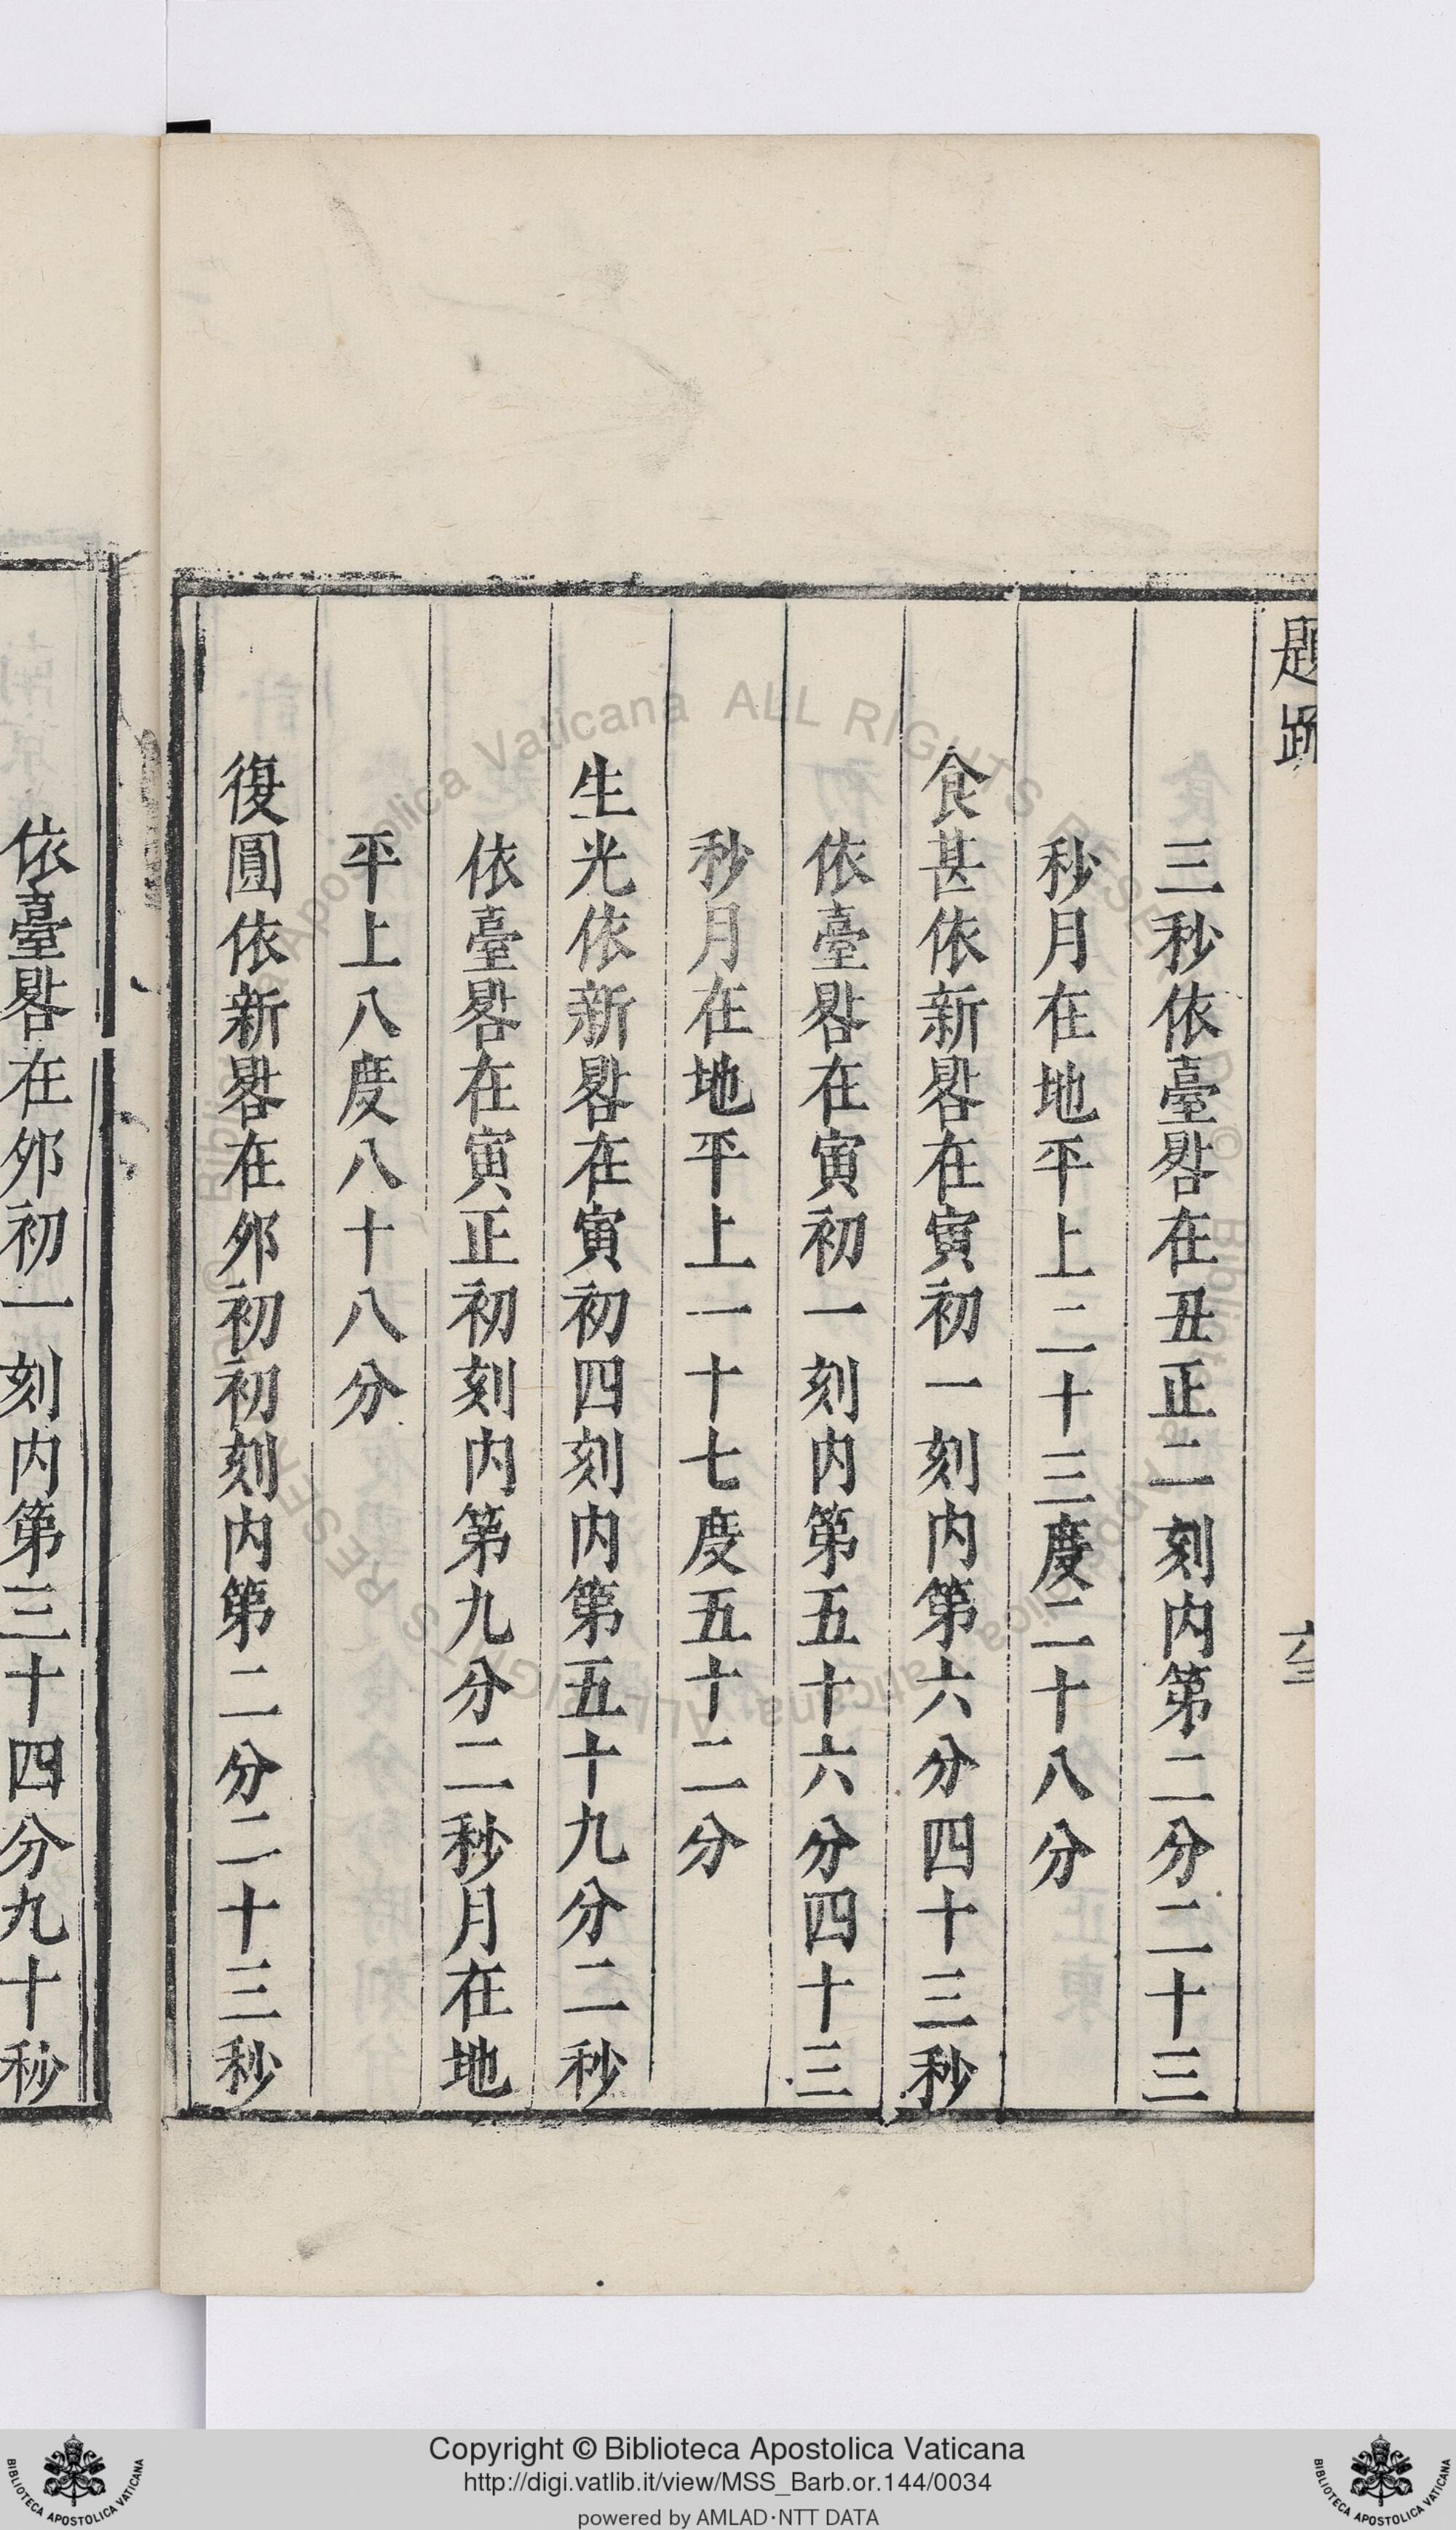 題疏
三秒依臺晷在丑正二刻内第二分二十三
秒月在地平上二十三度二十八分
食甚依新晷在寅初一刻内第六分四十三秒
依臺晷在寅初一刻内第五十六分四十三
秒月在地平上一十七度五十二分
生光依新晷在寅初四刻内第五十九分二秒
依臺晷在寅正初刻内第九分二秒月在地
平上八度八十八分
復圓依新晷在夘初初刻内第二分二十三秒
依臺晷在夘初一刻内第三十四分九十秒
Copyright © Biblioteca Apostolica Vaticana
http://digi.vatlib.it/view/MSS_Barb.or.144/0034
powered by AMLAD·NTT DATA
BIBLIOTECA APOSTOLICA VATICANA
BIBLIOTECA APOSTOLICA VATICANA